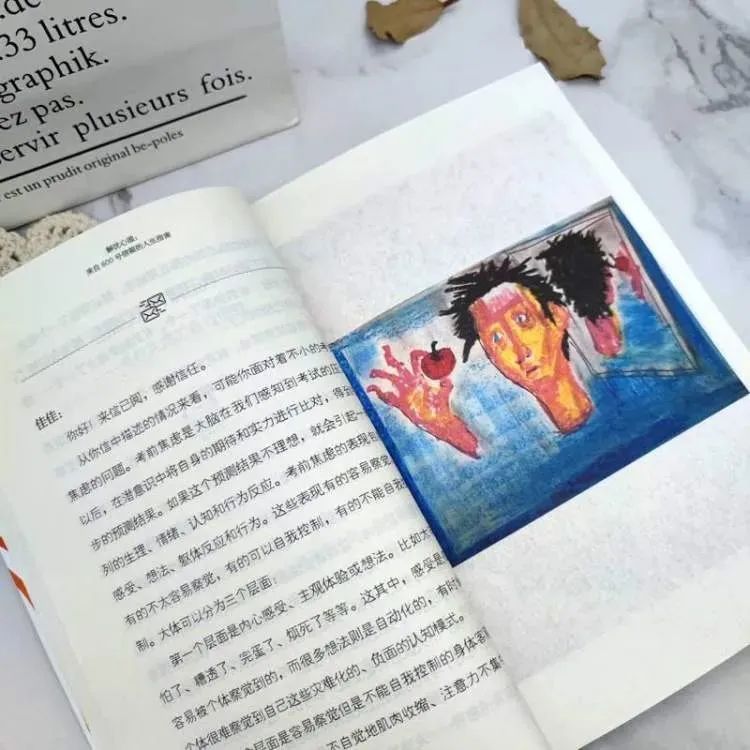 .de
.33 litres.
graphik.
ez pas.
ervir plusieurs fois.
est un prudit original be-poles
解忧心理:
来自 600 号信箱的人生指南
佳佳:
你好!来信已阅,感谢信任。
从你信中描述的情况来看,可能你面对着不小的考
焦虑的问题。考前焦虑是大脑在我们感知到考试的压
以后,在潜意识中将自身的期待和实力进行比对,得到
步的预测结果。如果这个预测结果不理想,就会引起一
列的生理、情绪、认知和行为反应。考前焦虑的表现
感受、想法、躯体反应和行为。这些表现有的容易察觉
有的不太容易察觉,有的可以自我控制,有的不能自我
制。大体可以分为三个层面:
第一个层面是内心感受、主观体验或想法。比如太
怕了、糟透了、完蛋了、烦死了等等。这其中,感受是
容易被个体察觉到的,而很多想法则是自动化的,有时
个体很难察觉到自己这些灾难化的、负面的认知模式。
个层面是容易察觉但是不能自我控制的身体
不自觉地肌肉收缩、注意力不集